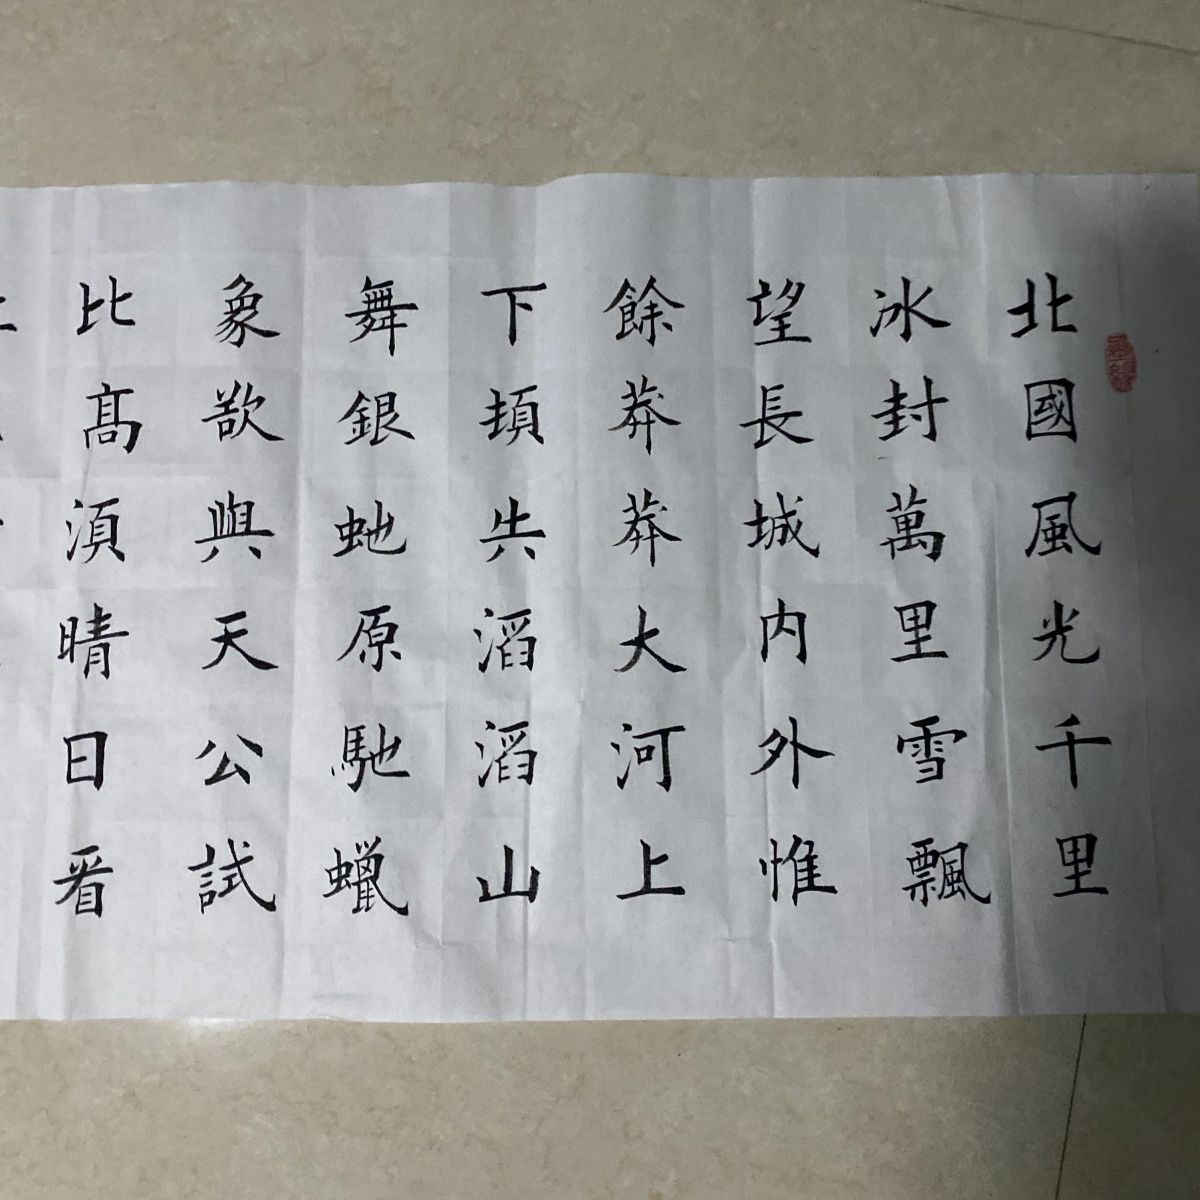 北國風光千里
冰封萬里雪飄
望長城内外惟
餘莽莽大河上
下頓失滔滔山
舞銀虵原馳蠟
象欲與天公試
比髙湏晴日看